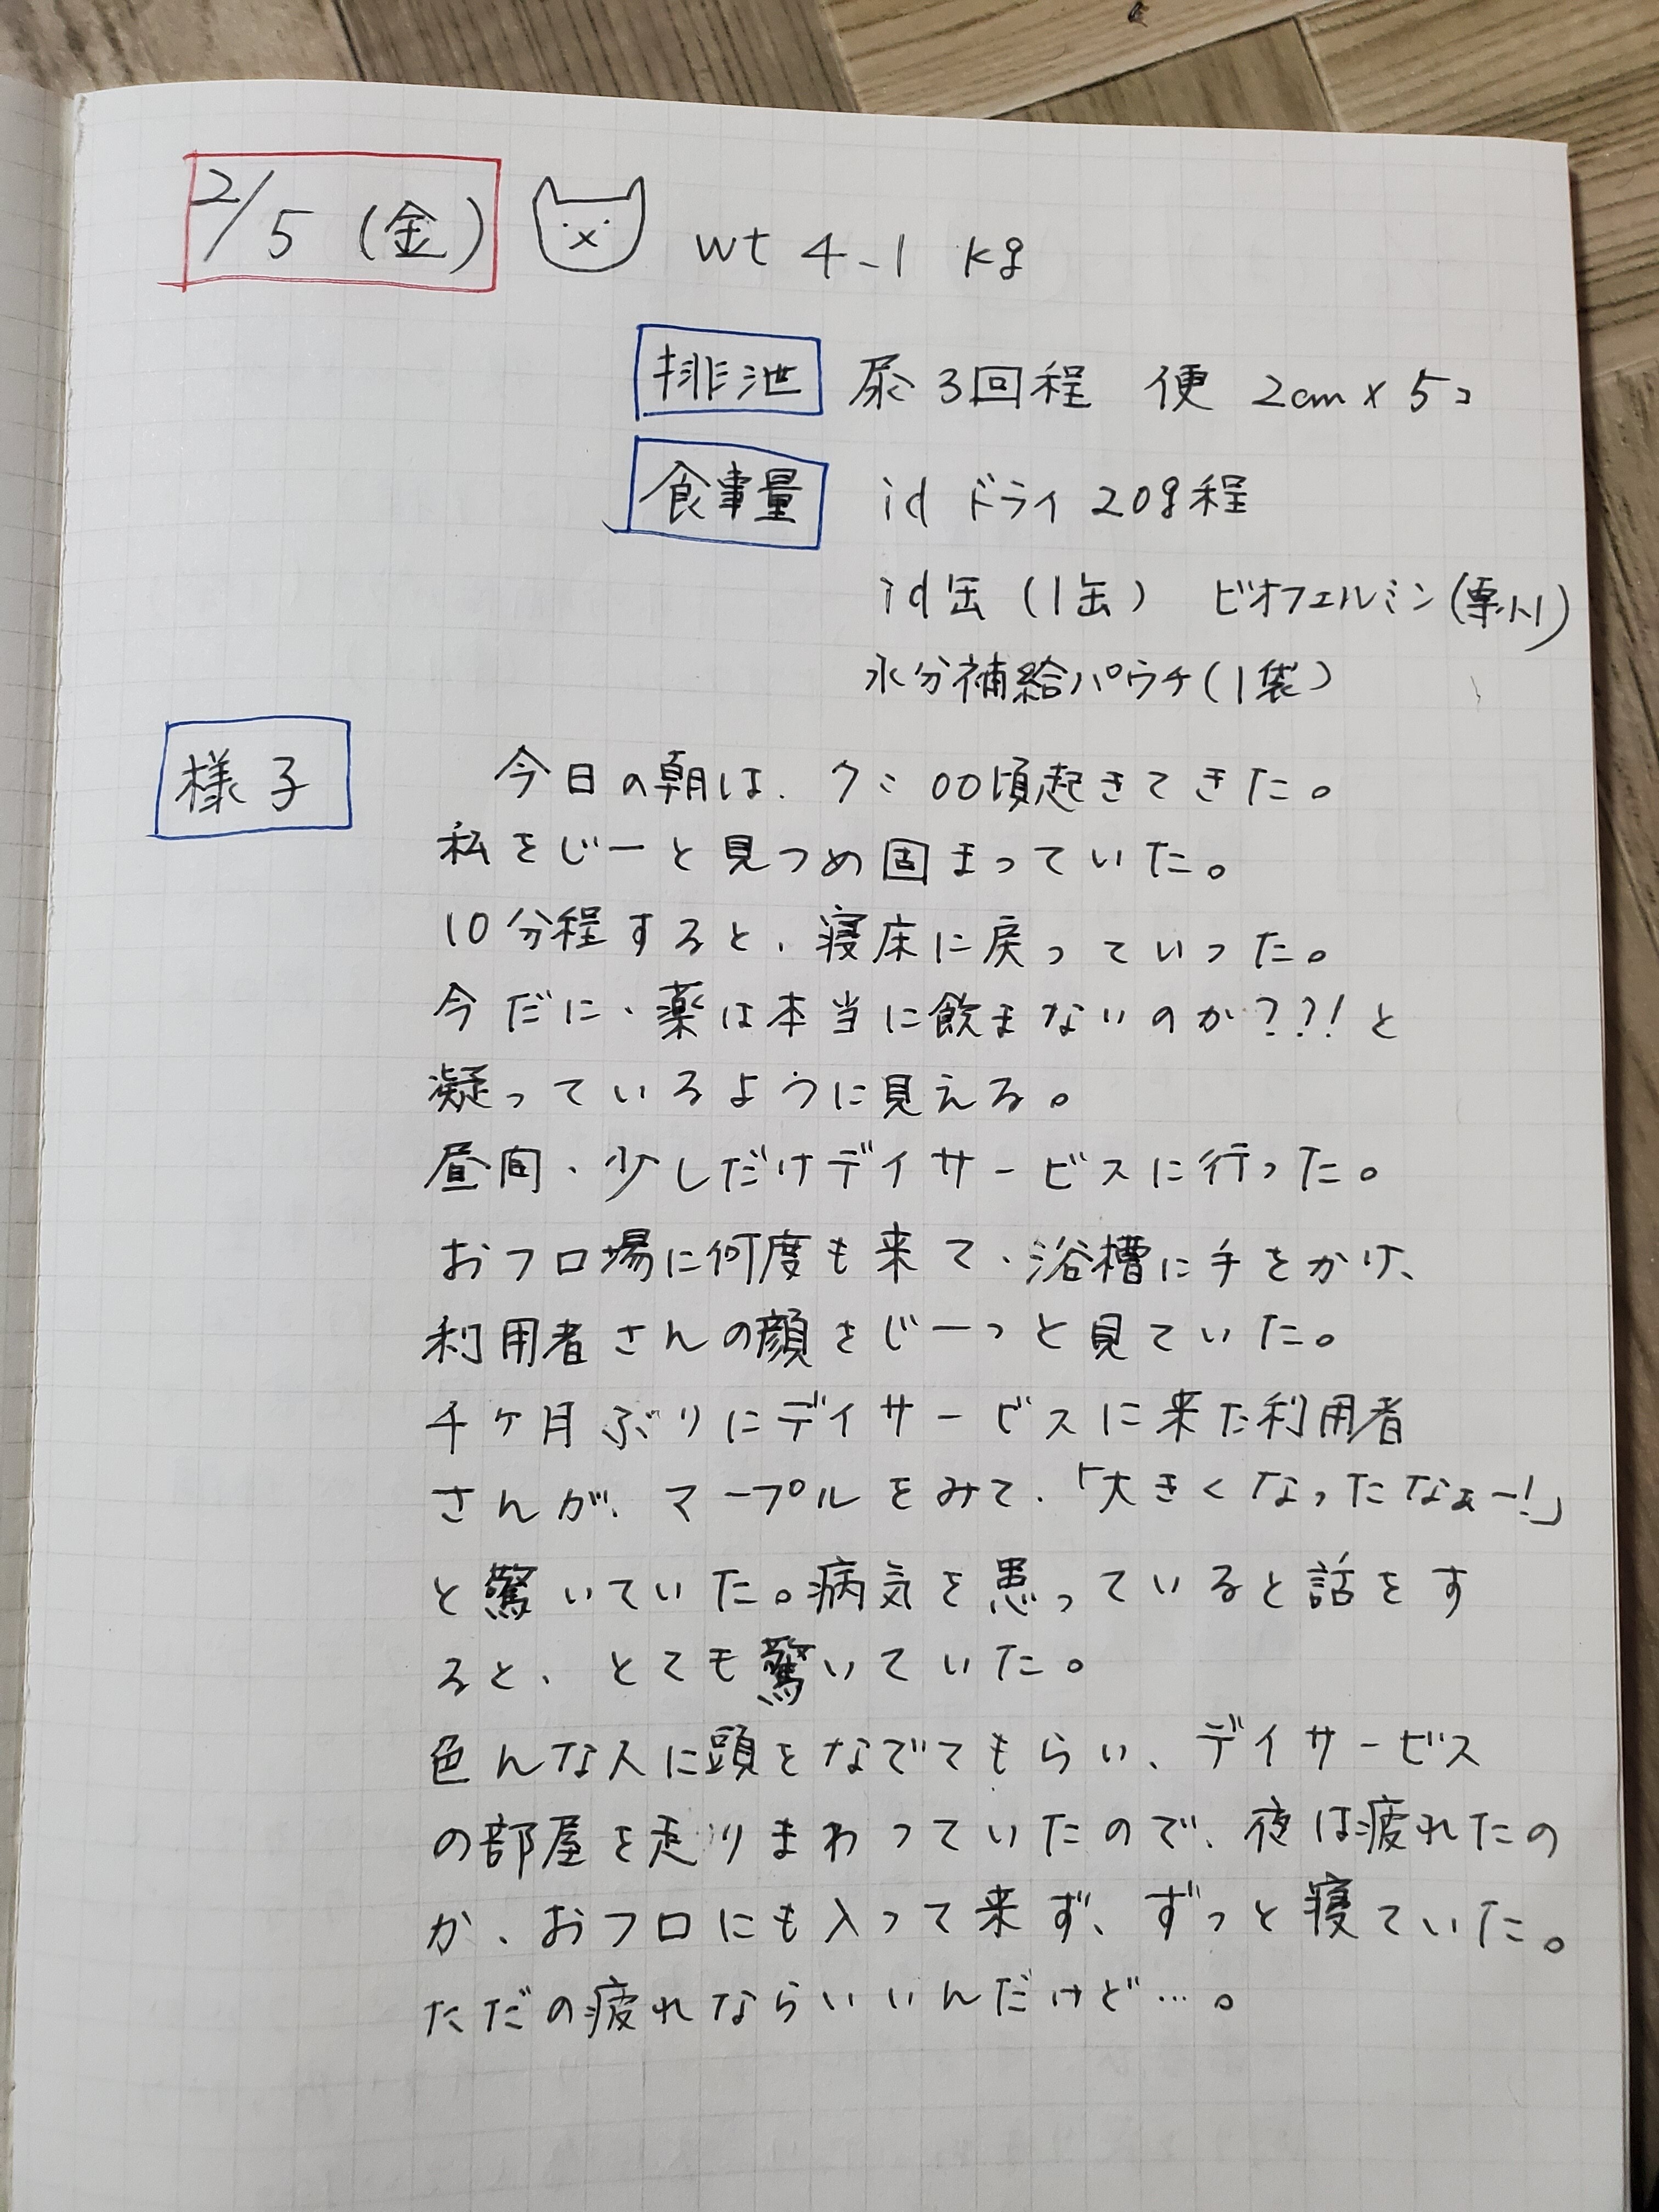 2/5 (金) wt 4.1 kg
排泄 尿3回程 便 2cm×5コ
食事量 id ドライ 20g程
id缶 (1缶) ビオフェルミン(
水分補給パウチ(1袋)
様子 今日の朝は、7:00頃起きてきた。
私をじーと見つめ固まっていた。
10分程すると、寝床に戻っていった。
今だに、薬は本当に飲まないのか???!と
凝っているように見える。
昼間、少しだけデイサービスに行った。
おフロ場に何度も来て、浴槽に手をかけ、
利用者さんの顔をじーっと見ていた。
千ヶ月ぶりにデイサービスに来た利用者
さんが、マープルをみて、「大きくなったなぁー!」
と驚いていた。病気を患っていると話をす
ると、とても驚いていた。
色んな人に頭をなでてもらい、デイサービス
の部屋を走りまわっていたので、夜は疲れたの
か、おフロにも入って来ず、ずっと寝ていた。
ただの疲れならいいんだけど…。